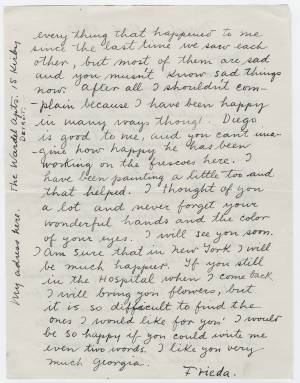 every thing that happened to me
since the last time we saw each
other, but most of them are sad
and you mustn't know sad things
now. After all I shouldn't com-
-plain because I have been happy
in many ways though. Diego
is good to me, and you can't ima-
-gine how happy he has been
working on the frescoes here. I
have been painting a little too and
that helped. I thought of you
a lot and never forget your
wonderful hands and the color
of your eyes. I will see you soon.
I am sure that in New York I will
be much happier. If you still
in the Hospital when I come back
I will bring you flowers, but
it is so difficult to find the
ones I would like for you. I would
be so happy if you could write me
even two words. I like you very
much Georgia.
Frieda.
My adress here. The Wardel Apts. 15 Kirby
Detroit.